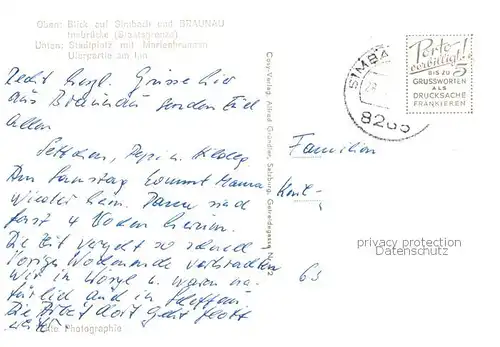 Oben: Blick auf Simbach und BRAUNAU
Innbrücke (Staatsgrenze)
Unten: Stadtplatz mit Marienbrunnen
Uferpartie am Inn
Recht herzl. Grüsse hier
aus Braunau senden Euch
allen
Pepi u. Hildeg.
Am Samstag kommt Mama
wieder heim. Dann sind
fast 4 Wochen herum.
Die Zeit vergeht so schnell
Vorige Wochenende verbrachten
wir in Wörgl u. waren na-
türlich auch in
Die Arbeit dort geht flott
weiter
Photographie
Cosy-Verlag Alfred Gründler, Salzburg, Getreidegasse Nr. 22
SIMBA
8265
Porto
verbilligt!
BIS ZU 5
GRUSSWORTEN
ALS
DRUCKSACHE
FRANKIEREN
Familien
privacy protection
Datenschutz
63